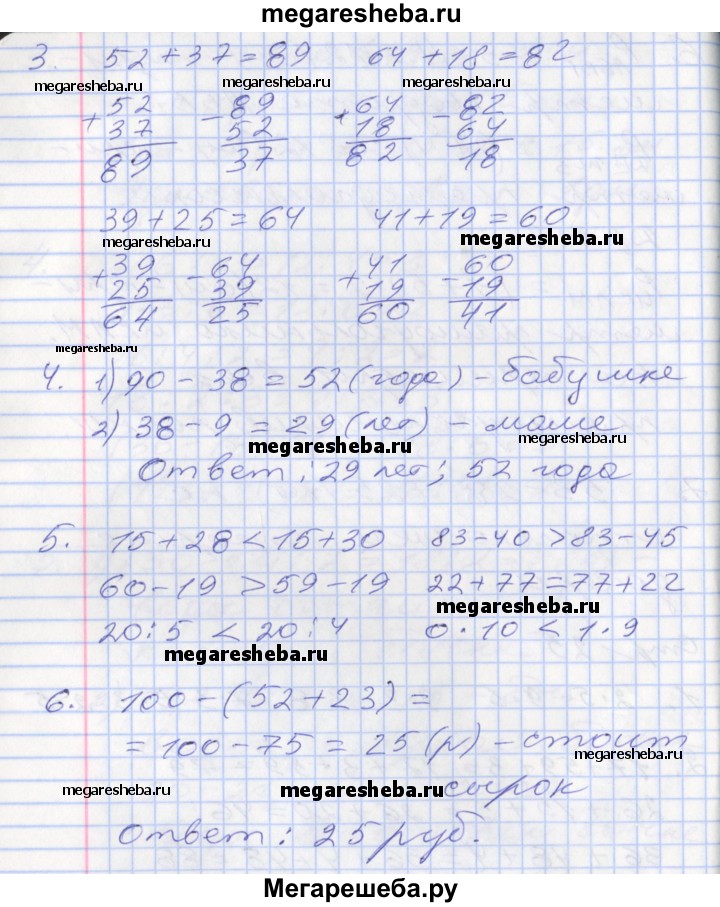 megaresheba.ru
3. 52+37=89 64+18=82
megaresheba.ru megaresheba.ru megaresheba.ru
+52 -89 +64 -82
37 52 18 64
89 37 82 18
39+25=64 41+19=60
megaresheba.ru megaresheba.ru
+39 -64 +41 -60
25 39 19 19
64 25 60 41
megaresheba.ru
4. 1) 90-38=52(года)-бабушке
2) 38-9=29(лет)-маме
megaresheba.ru megaresheba.ru
Ответ: 29 лет; 52 года
5. 15+28<15+30 83-40>83-45
60-19>59-19 22+77=77+22
megaresheba.ru
20:5<20:4 0·10<1·9
megaresheba.ru
6. 100-(52+23)=
=100-75=25(р)-стоит
megaresheba.ru megaresheba.ru megaresheba.ru
сырок
Ответ: 25 руб.
Мегарешеба.ру